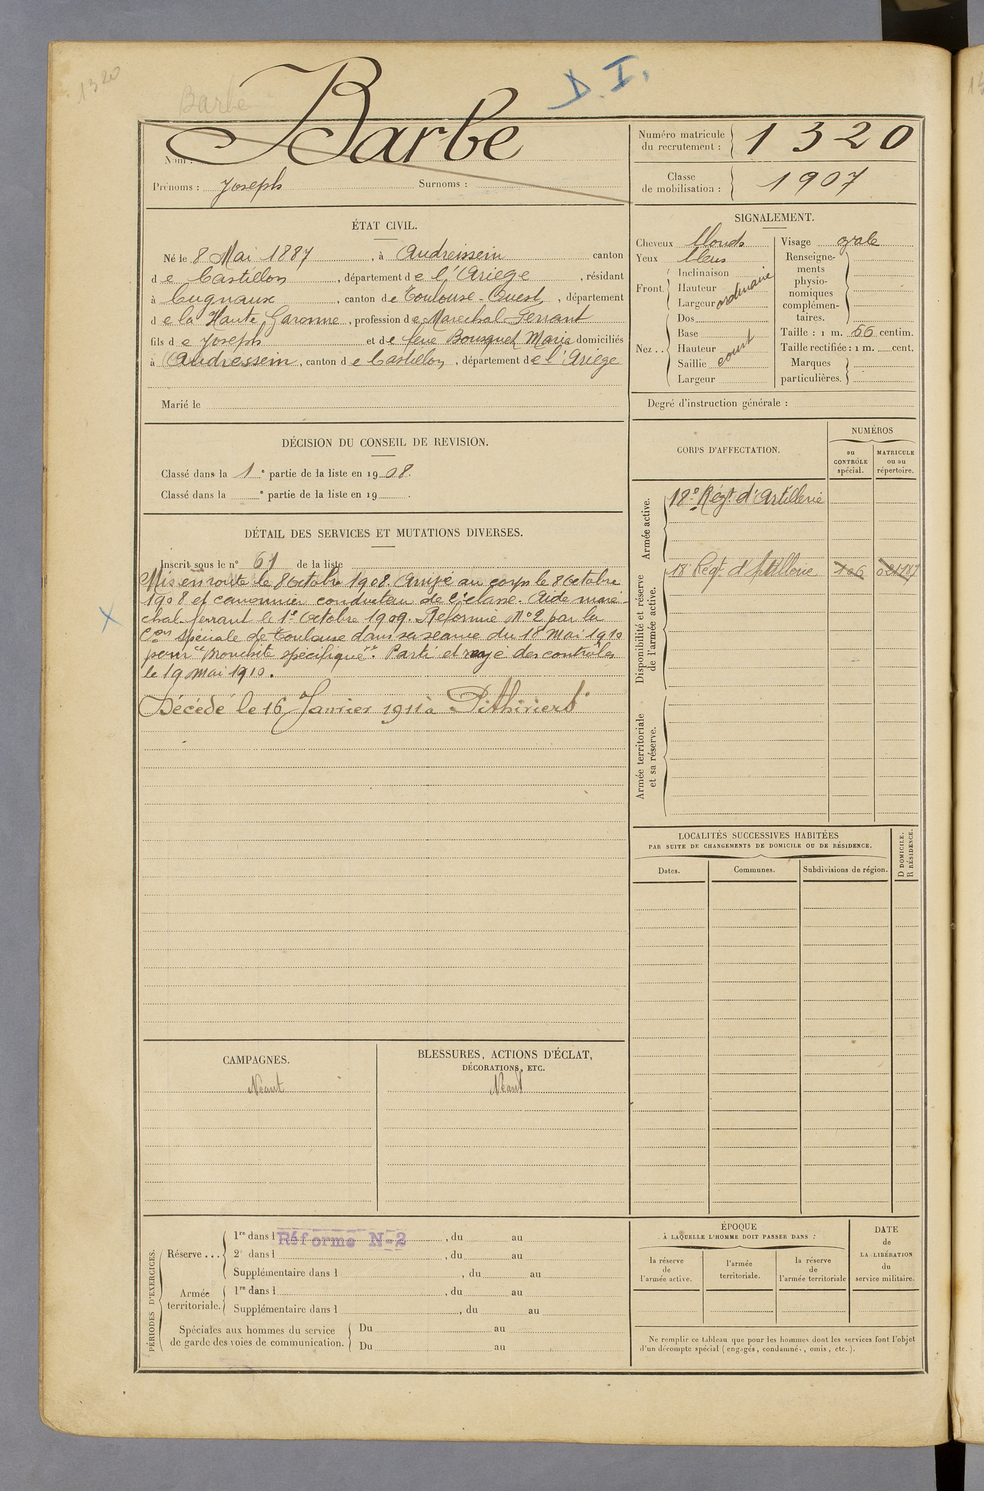 1320
Barbe
D.I.
Barbe
Nom :
Prénoms : Joseph Surnoms :
Numéro matricule du recrutement : 1320
Classe de mobilisation : 1907
ÉTAT CIVIL.
Né le 8 Mai 1887, à Audressein canton
de Castillon, département de l'Ariège, résidant
à Cugnaux, canton de Toulouse-Ouest, département
de la Haute Garonne, profession de Marechal Ferrant
fils de Joseph et de feue Bousquet Maria domiciliés
à Audressein, canton de Castillon, département de l'Ariège
Marié le
SIGNALEMENT.
Cheveux blonds
Yeux bleus
Front. Inclinaison
Hauteur
Largeur
ordinaire
Nez.. Dos
Base
Hauteur
Saillie
Largeur
court
Visage ovale
Renseignements physionomiques complémentaires.
Taille : 1 m. 66 centim.
Taille rectifiée : 1 m. cent.
Marques particulières.
Degré d'instruction générale :
DÉCISION DU CONSEIL DE REVISION.
Classé dans la 1e partie de la liste en 1908.
Classé dans la e partie de la liste en 19 .
DÉTAIL DES SERVICES ET MUTATIONS DIVERSES.
Inscrit sous le n° 61 de la liste
Mis en route le 8 Octobre 1908. Arrivé au corps le 8 Octobre
1908 et canonnier conducteur de 2e classe. Aide maré
chal ferrant le 1er Octobre 1909. Réformé No 2 par la
Con spéciale de Toulouse dans sa séance du 18 Mai 1910
pour "Bronchite spécifique". Parti et rayé des contrôles
le 19 mai 1910.
Décédé le 16 Janvier 1911 à Pithiviers
CORPS D'AFFECTATION.
NUMÉROS
au CONTRÔLE spécial.
MATRICULE ou au répertoire.
Armée active.
18e Régt. d'Artillerie
Disponibilité et réserve de l'armée active.
18 Régt. d'Artillerie
Armée territoriale et sa réserve.
LOCALITÉS SUCCESSIVES HABITÉES
PAR SUITE DE CHANGEMENTS DE DOMICILE OU DE RÉSIDENCE.
Dates.
Communes.
Subdivisions de région.
D DOMICILE.
R RÉSIDENCE.
CAMPAGNES.
Néant
BLESSURES, ACTIONS D'ÉCLAT,
DÉCORATIONS, ETC.
Néant
PÉRIODES D'EXERCICES.
Réserve ... 1re dans l Réforme N-2, du au
2e dans l , du au
Supplémentaire dans l , du au
Armée territoriale. 1re dans l , du au
Supplémentaire dans l , du au
Spéciales aux hommes du service de garde des voies de communication. Du au
Du au
ÉPOQUE
À LAQUELLE L'HOMME DOIT PASSER DANS :
la réserve de l'armée active.
l'armée territoriale.
la réserve de l'armée territoriale
DATE de LA LIBÉRATION du service militaire.
Ne remplir ce tableau que pour les hommes dont les services font l'objet
d'un décompte spécial (engagés, condamnés, omis, etc.).